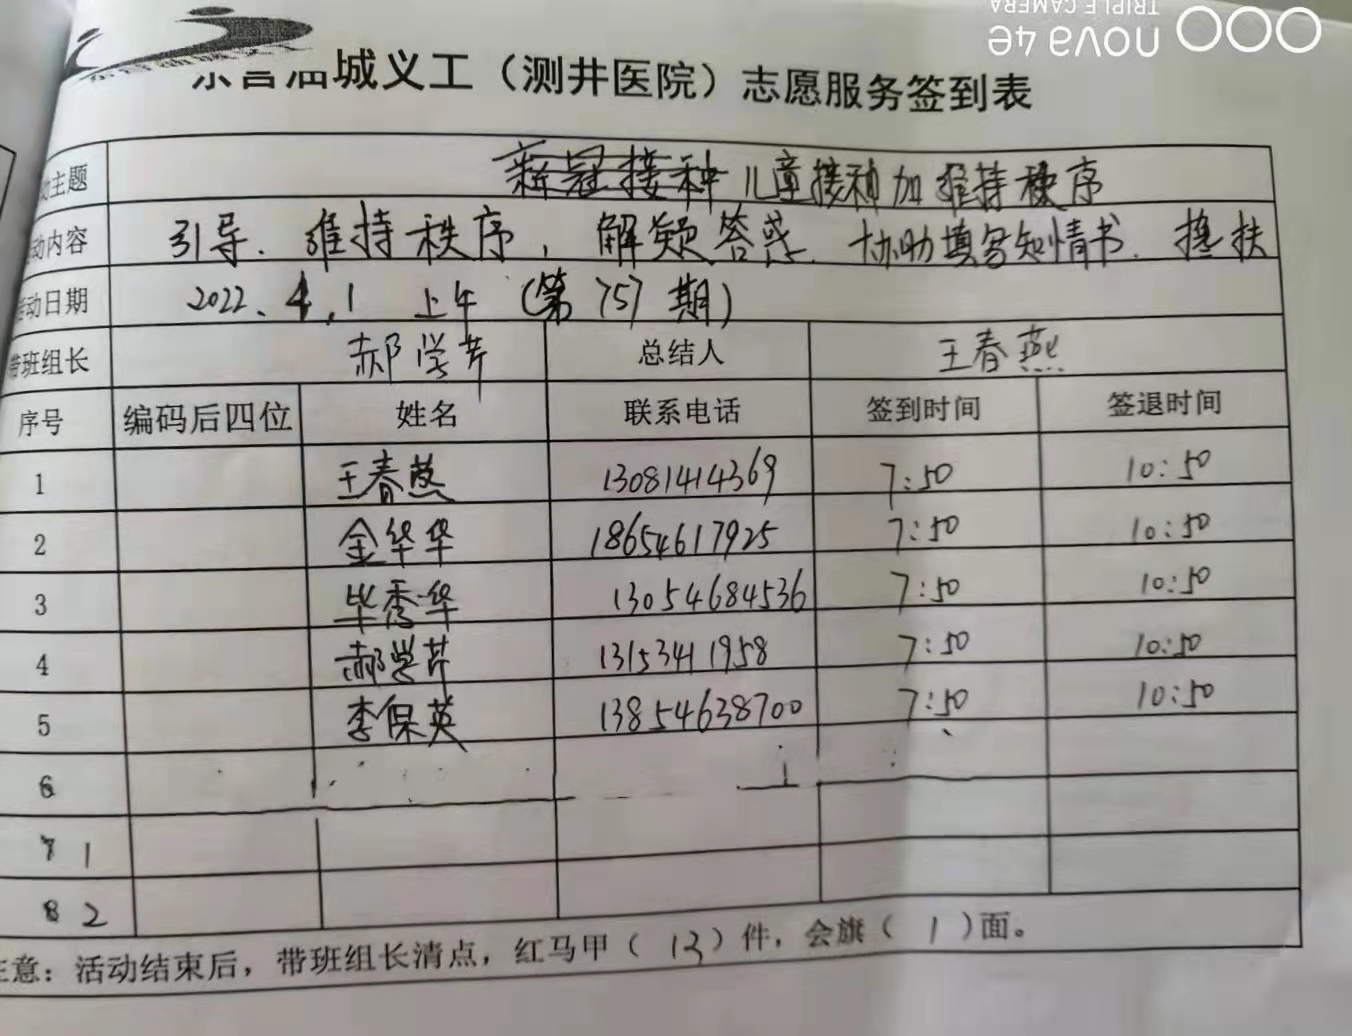 nova 4e
TRIPLE CAMERA
东营油城义工（测井医院）志愿服务签到表
动主题 新冠接种 儿童接种加维持秩序
动内容 引导.维持秩序，解疑答惑.协助填写知情书.搀扶
活动日期 2022.4.1 上午（第757期）
带班组长 郝学芹 总结人 王春燕
序号 编码后四位 姓名 联系电话 签到时间 签退时间
1 王春燕 13081414369 7:50 10:50
2 金华华 18654617925 7:50 10:50
3 毕秀华 13054684536 7:50 10:50
4 郝学芹 13153411958 7:50 10:50
5 李保英 13854638700 7:50 10:50
6
7 1
8 2
注意：活动结束后，带班组长清点，红马甲（13）件，会旗（1）面。